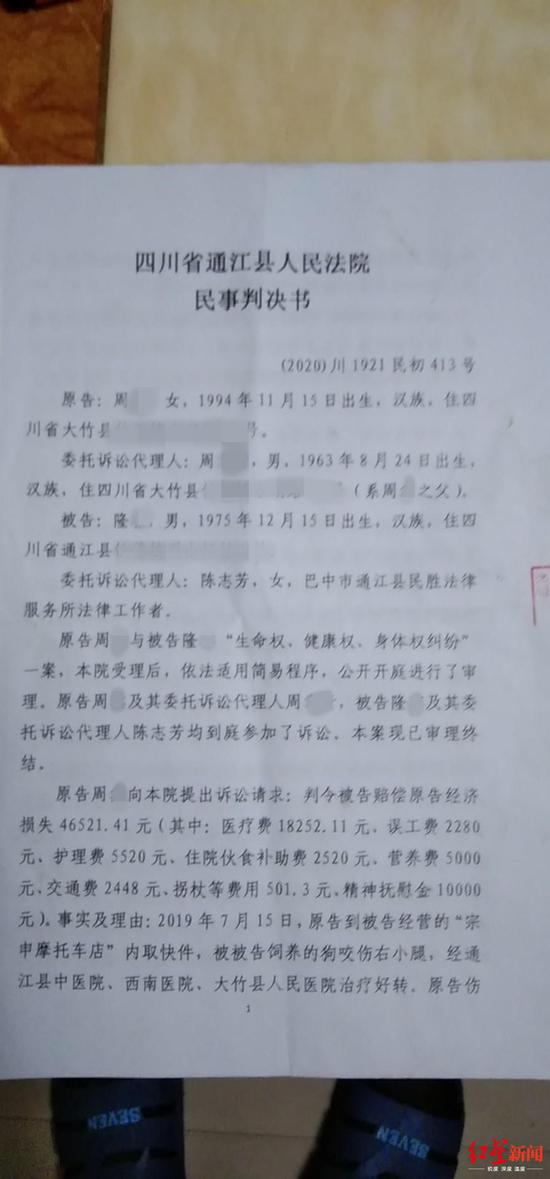 四川省通江县人民法院
民事判决书
(2020)川1921民初413号
原告：周 女，1994年11月15日出生，汉族，住四
川省大竹县 号。
委托诉讼代理人：周 ，男，1963年8月24日出生，
汉族，住四川省大竹县 （系周 之父）。
被告：隆 ，男，1975年12月15日出生，汉族，住四
川省通江县
委托诉讼代理人：陈志芳，女，巴中市通江县民胜法律
服务所法律工作者。
原告周 与被告隆 “生命权、健康权、身体权纠纷”
一案，本院受理后，依法适用简易程序，公开开庭进行了审
理。原告周 及其委托诉讼代理人周 ，被告隆 及其委
托诉讼代理人陈志芳均到庭参加了诉讼。本案现已审理终
结。
原告周 向本院提出诉讼请求：判令被告赔偿原告经济
损失46521.41元（其中：医疗费18252.11元、误工费2280
元、护理费5520元、住院伙食补助费2520元、营养费5000
元、交通费2448元、拐杖等费用501.3元、精神抚慰金10000
元）。事实及理由：2019年7月15日，原告到被告经营的“宗
申摩托车店”内取快件，被被告饲养的狗咬伤右小腿，经通
江县中医院、西南医院、大竹县人民医院治疗好转。原告伤
1
SEVEN
SEVEN
红星新闻
锐度 深度 温度